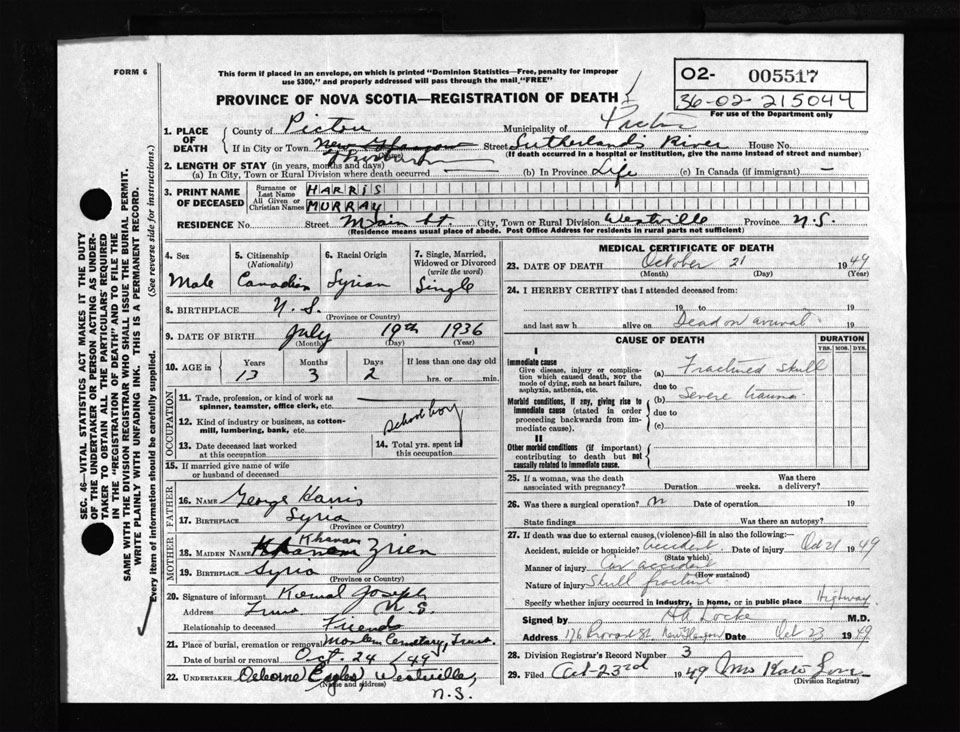 FORM 6
This form if placed in an envelope, on which is printed "Dominion Statistics—Free, penalty for improper
use $300," and properly addressed will pass through the mail "FREE"
02- 005517
36-02-215044
For use of the Department only
PROVINCE OF NOVA SCOTIA—REGISTRATION OF DEATH
1. PLACE OF DEATH
County of Pictou Municipality of Pictou
If in City or Town New Glasgow Street Sutherlands River House No.
(If death occurred in a hospital or institution, give the name instead of street and number)
2. LENGTH OF STAY (in years, months and days)
(a) In City, Town or Rural Division where death occurred (b) In Province Life (c) In Canada (if immigrant) —
3. PRINT NAME OF DECEASED
Surname or Last Name HARRIS
All Given or Christian Names MURRAY
RESIDENCE No. Street Main St. City, Town or Rural Division Westville Province N.S.
(Residence means usual place of abode. Post Office Address for residents in rural parts not sufficient)
4. Sex Male
5. Citizenship (Nationality) Canadian
6. Racial Origin Syrian
7. Single, Married, Widowed or Divorced (write the word) Single
8. BIRTHPLACE N.S.
(Province or Country)
9. DATE OF BIRTH July 19th 1936
(Month) (Day) (Year)
10. AGE in Years 13 Months 3 Days 2 If less than one day old
hrs. or min.
OCCUPATION
11. Trade, profession, or kind of work as spinner, teamster, office clerk, etc. School boy
12. Kind of industry or business, as cotton-mill, lumbering, bank, etc.
13. Date deceased last worked at this occupation
14. Total yrs. spent in this occupation
15. If married give name of wife or husband of deceased
FATHER
16. NAME George Harris
17. BIRTHPLACE Syria
(Province or Country)
MOTHER
18. MAIDEN NAME Khanam Zrien
19. BIRTHPLACE Syria
(Province or Country)
20. Signature of informant Kemal Joseph
Address Truro N.S.
Relationship to deceased Friends
21. Place of burial, cremation or removal Moslem Cemetery, Truro
Date of burial or removal Oct. 24 /49
22. UNDERTAKER Osborne Eagles, Westville,
(Name and address)
N.S.
MEDICAL CERTIFICATE OF DEATH
23. DATE OF DEATH October 21 1949
(Month) (Day) (Year)
24. I HEREBY CERTIFY that I attended deceased from:
19 to 19
and last saw h alive on Dead on arrival 19
CAUSE OF DEATH
DURATION
YRS. MOS. DYS.
I
Immediate cause
Give disease, injury or complication which caused death, NOT the mode of dying, such as heart failure, asphyxia, asthenia, etc.
(a) Fractured Skull
due to
Morbid conditions, if any, giving rise to immediate cause (stated in order proceeding backwards from immediate cause).
(b) Severe trauma
due to
(c)
II
Other morbid conditions (if important) contributing to death but not causally related to immediate cause.
25. If a woman, was the death associated with pregnancy? Duration weeks. Was there a delivery?
26. Was there a surgical operation? Date of operation 19
State findings Was there an autopsy?
27. If death was due to external causes, (violence) fill in also the following:—
Accident, suicide or homicide? Accident Date of injury Oct 21 1949
(State which)
Manner of injury Car accident
(How sustained)
Nature of injury Skull fracture
Specify whether injury occurred in industry, in home, or in public place Highway
Signed by Locke M.D.
Address 176 Provost St. New Glasgow Date Oct 23 1949
28. Division Registrar's Record Number 3
29. Filed Oct-23rd 1949 Mrs Kate
(Division Registrar)
SEC. 46—VITAL STATISTICS ACT MAKES IT THE DUTY
OF THE UNDERTAKER OR PERSON ACTING AS UNDER-
TAKER TO OBTAIN ALL THE PARTICULARS REQUIRED
IN THE "REGISTRATION OF DEATH" AND TO FILE THE
SAME WITH THE DIVISION REGISTRAR WHO SHALL ISSUE THE BURIAL PERMIT.
WRITE PLAINLY WITH UNFADING INK. THIS IS A PERMANENT RECORD.
Every item of information should be carefully supplied. (See reverse side for instructions.)